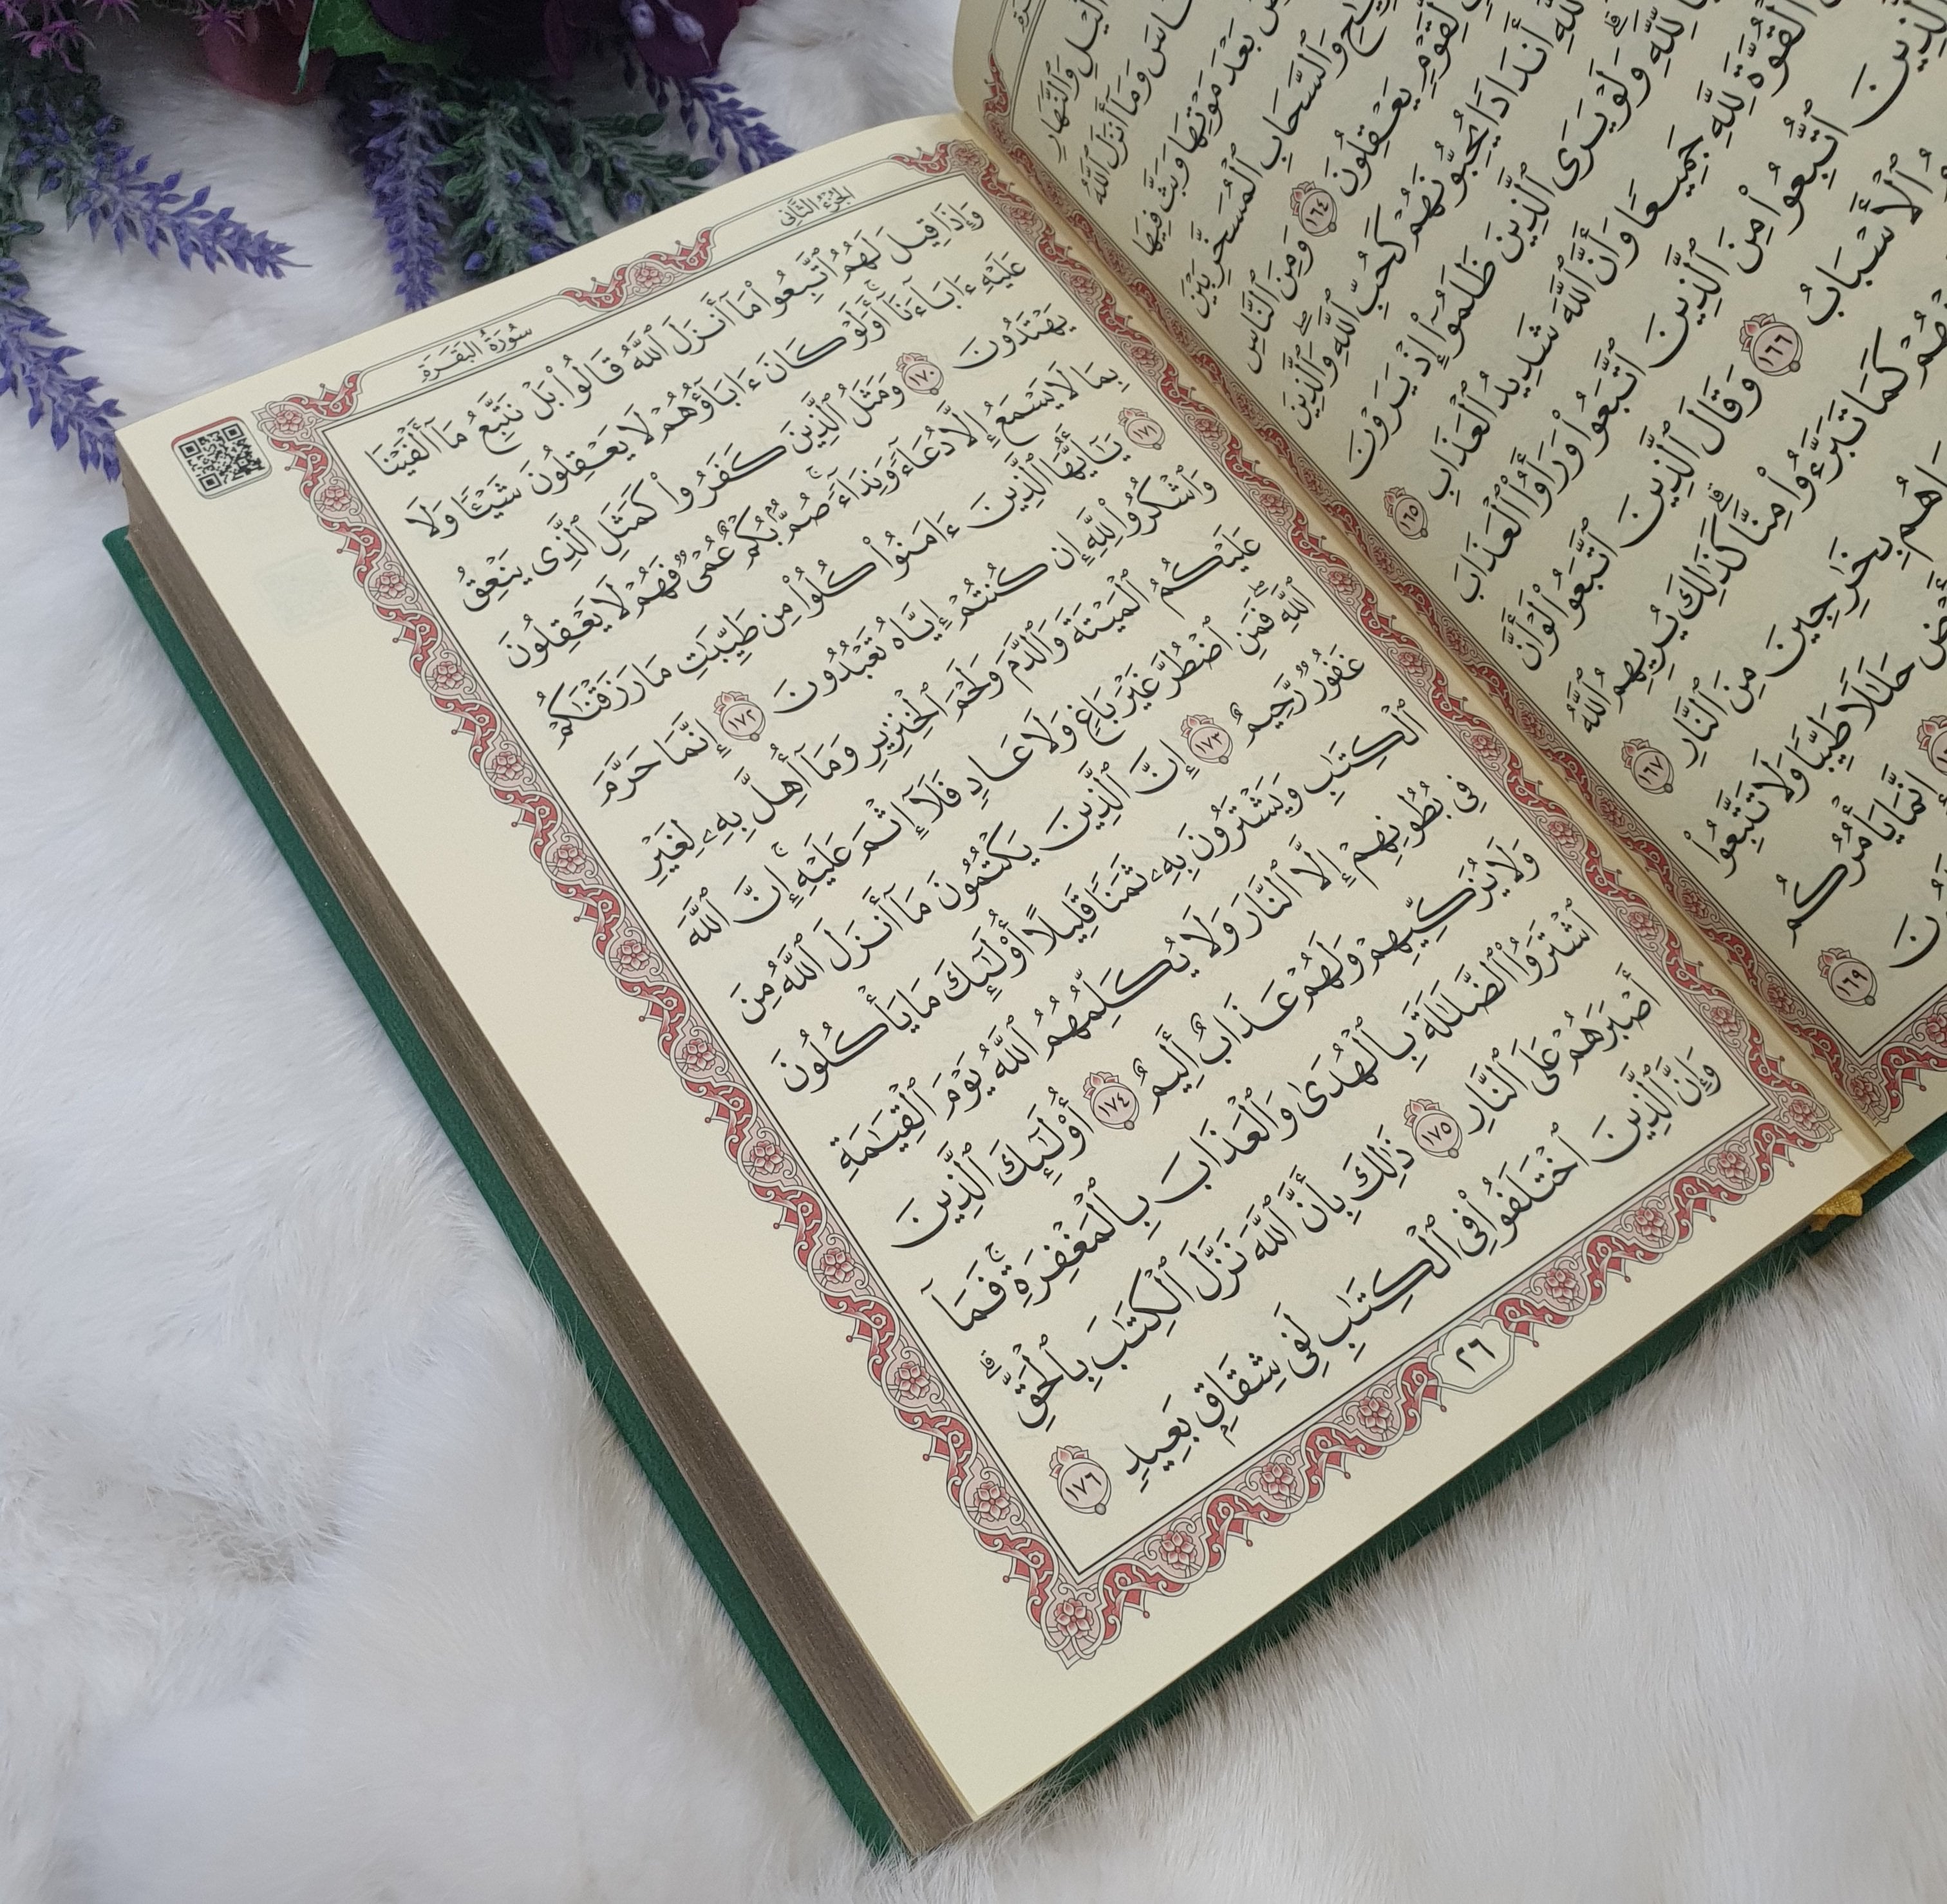 ٱلَّيْلِ وَٱلنَّهَارِ
وَمَآ أَنزَلَ ٱللَّهُ
بَعْدَ مَوْتِهَا وَبَثَّ فِيهَا
وَٱلسَّحَابِ ٱلْمُسَخَّرِ بَيْنَ
لِّقَوْمٍ يَعْقِلُونَ ١٦٤ وَمِنَ ٱلنَّاسِ
أَندَادًا يُحِبُّونَهُمْ كَحُبِّ ٱللَّهِۖ وَٱلَّذِينَ
لِّلَّهِۗ وَلَوْ يَرَى ٱلَّذِينَ ظَلَمُوٓا۟ إِذْ يَرَوْنَ
ٱلْقُوَّةَ لِلَّهِ جَمِيعًا وَأَنَّ ٱللَّهَ شَدِيدُ ٱلْعَذَابِ ١٦٥
ٱلَّذِينَ ٱتُّبِعُوا۟ مِنَ ٱلَّذِينَ ٱتَّبَعُوا۟ وَرَأَوُا۟ ٱلْعَذَابَ
ٱلْأَسْبَابُ ١٦٦ وَقَالَ ٱلَّذِينَ ٱتَّبَعُوا۟ لَوْ أَنَّ
كَمَا تَبَرَّءُوا۟ مِنَّاۗ كَذَٰلِكَ يُرِيهِمُ ٱللَّهُ
بِخَٰرِجِينَ مِنَ ٱلنَّارِ ١٦٧
حَلَٰلًا طَيِّبًا وَلَا تَتَّبِعُوا۟
إِنَّمَا يَأْمُرُكُم
١٦٩
الجُزْءُ الثَّانِي
سُورَةُ البَقَرَةِ
وَإِذَا قِيلَ لَهُمُ ٱتَّبِعُوا۟ مَآ أَنزَلَ ٱللَّهُ قَالُوا۟ بَلْ نَتَّبِعُ مَآ أَلْفَيْنَا
عَلَيْهِ ءَابَآءَنَآۚ أَوَلَوْ كَانَ ءَابَآؤُهُمْ لَا يَعْقِلُونَ شَيْـًٔا وَلَا
يَهْتَدُونَ ١٧٠ وَمَثَلُ ٱلَّذِينَ كَفَرُوا۟ كَمَثَلِ ٱلَّذِى يَنْعِقُ
بِمَا لَا يَسْمَعُ إِلَّا دُعَآءً وَنِدَآءًۚ صُمٌّۢ بُكْمٌ عُمْىٌ فَهُمْ لَا يَعْقِلُونَ
١٧١ يَٰٓأَيُّهَا ٱلَّذِينَ ءَامَنُوا۟ كُلُوا۟ مِن طَيِّبَٰتِ مَا رَزَقْنَٰكُمْ
وَٱشْكُرُوا۟ لِلَّهِ إِن كُنتُمْ إِيَّاهُ تَعْبُدُونَ ١٧٢ إِنَّمَا حَرَّمَ
عَلَيْكُمُ ٱلْمَيْتَةَ وَٱلدَّمَ وَلَحْمَ ٱلْخِنزِيرِ وَمَآ أُهِلَّ بِهِۦ لِغَيْرِ
ٱللَّهِۖ فَمَنِ ٱضْطُرَّ غَيْرَ بَاغٍ وَلَا عَادٍ فَلَآ إِثْمَ عَلَيْهِۚ إِنَّ ٱللَّهَ
غَفُورٌ رَّحِيمٌ ١٧٣ إِنَّ ٱلَّذِينَ يَكْتُمُونَ مَآ أَنزَلَ ٱللَّهُ مِنَ
ٱلْكِتَٰبِ وَيَشْتَرُونَ بِهِۦ ثَمَنًا قَلِيلًا أُو۟لَٰٓئِكَ مَا يَأْكُلُونَ
فِى بُطُونِهِمْ إِلَّا ٱلنَّارَ وَلَا يُكَلِّمُهُمُ ٱللَّهُ يَوْمَ ٱلْقِيَٰمَةِ
وَلَا يُزَكِّيهِمْ وَلَهُمْ عَذَابٌ أَلِيمٌ ١٧٤ أُو۟لَٰٓئِكَ ٱلَّذِينَ
ٱشْتَرَوُا۟ ٱلضَّلَٰلَةَ بِٱلْهُدَىٰ وَٱلْعَذَابَ بِٱلْمَغْفِرَةِۚ فَمَآ
أَصْبَرَهُمْ عَلَى ٱلنَّارِ ١٧٥ ذَٰلِكَ بِأَنَّ ٱللَّهَ نَزَّلَ ٱلْكِتَٰبَ بِٱلْحَقِّۗ
وَإِنَّ ٱلَّذِينَ ٱخْتَلَفُوا۟ فِى ٱلْكِتَٰبِ لَفِى شِقَاقٍۭ بَعِيدٍ ١٧٦
٢٦